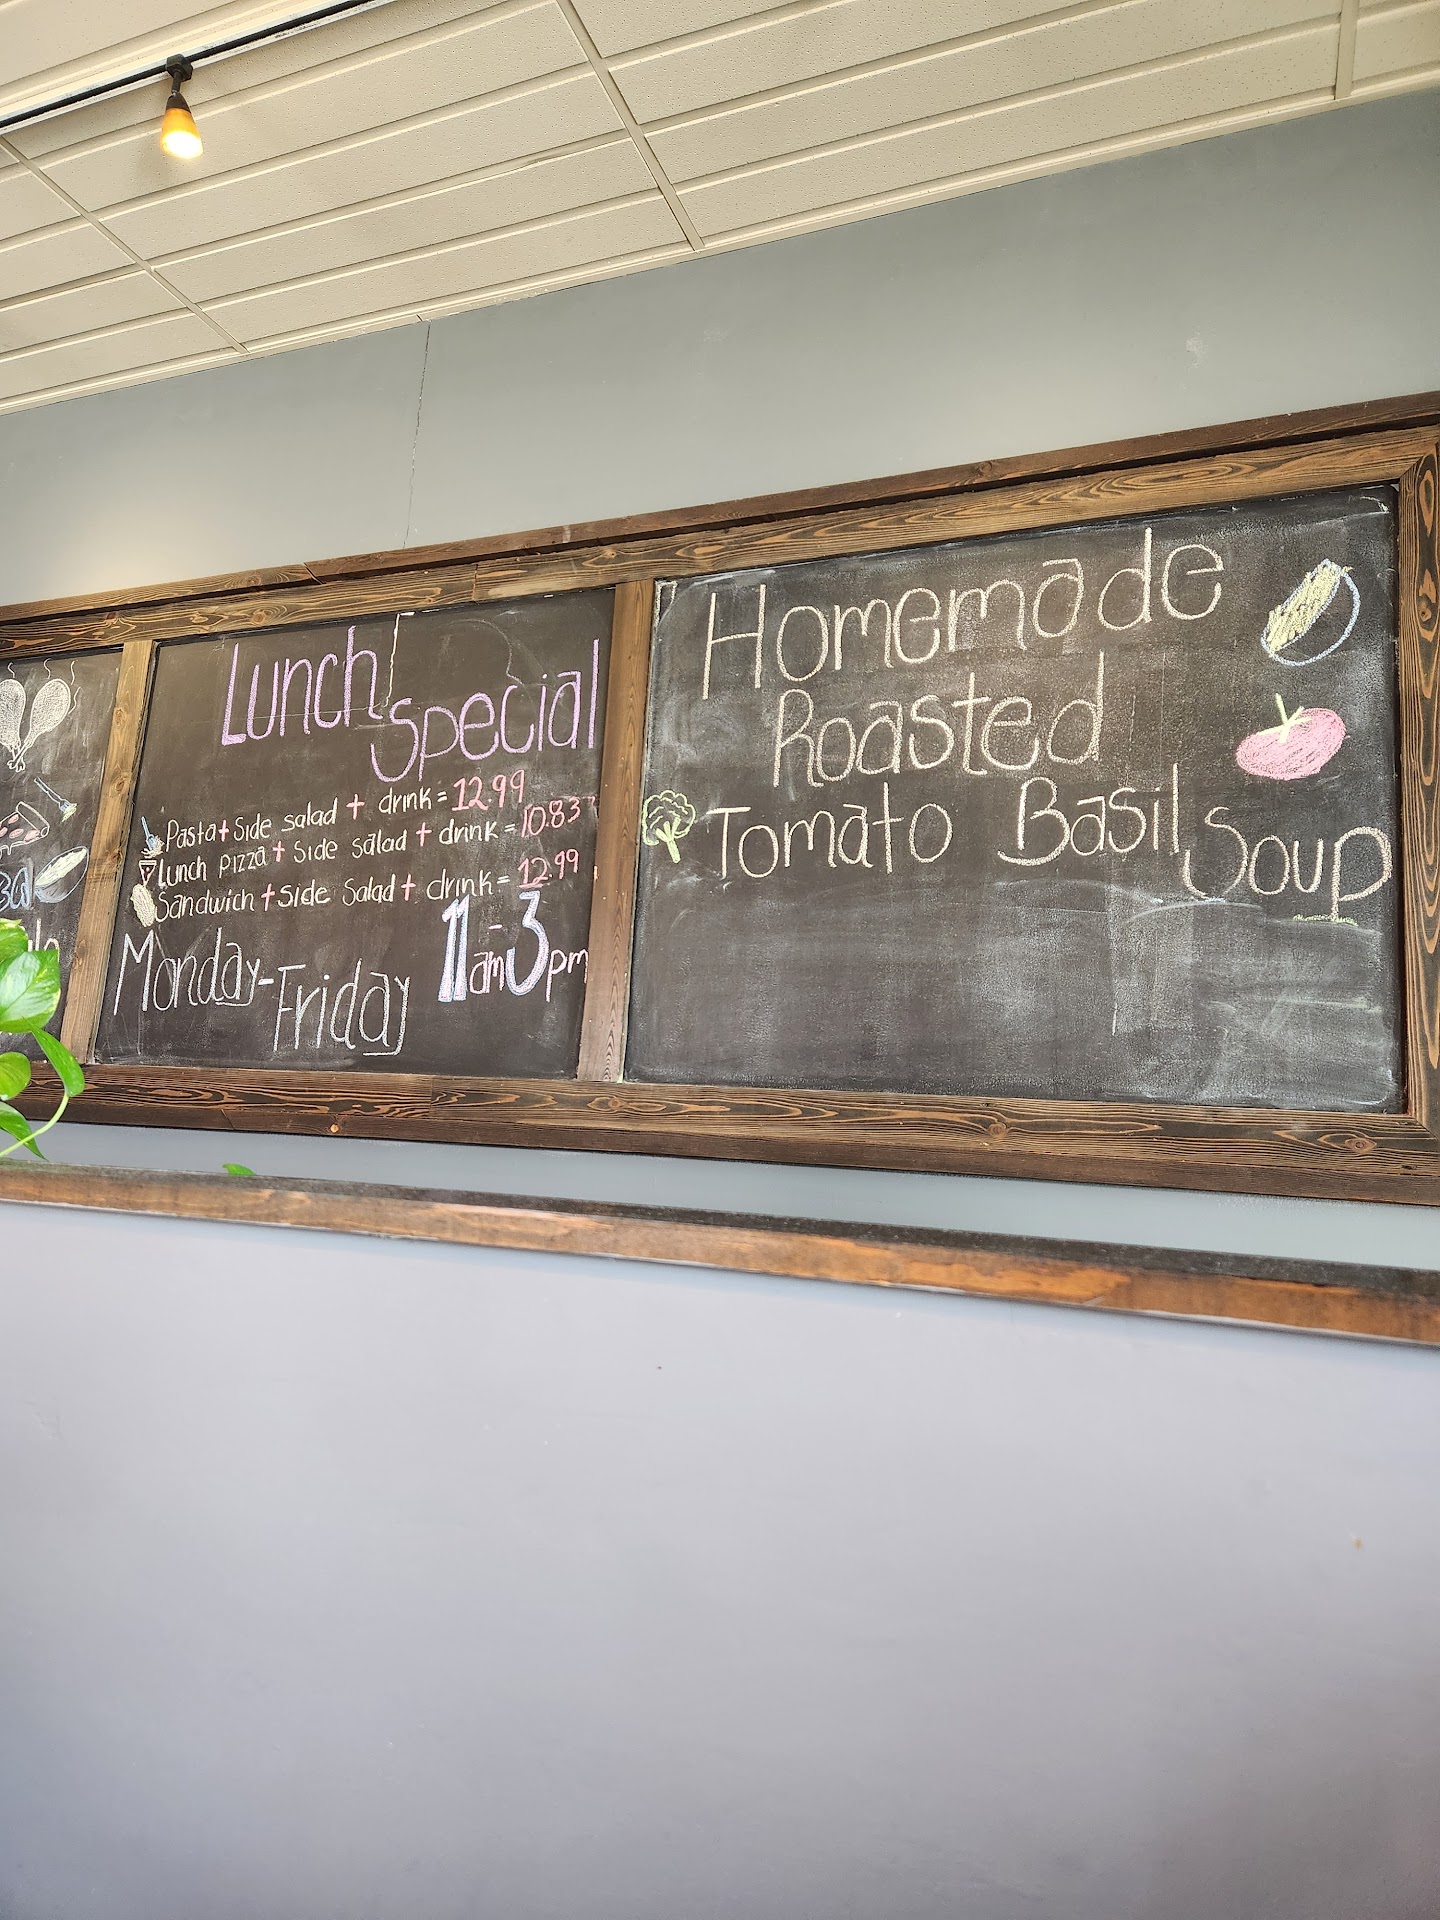 Lunch
Special
Pasta + Side salad + drink = 12.99
Lunch pizza + Side salad + drink = 10.83
Sandwich + Side Salad + drink = 12.99
Monday - Friday
11am - 3pm
Homemade
Roasted
Tomato Basil Soup